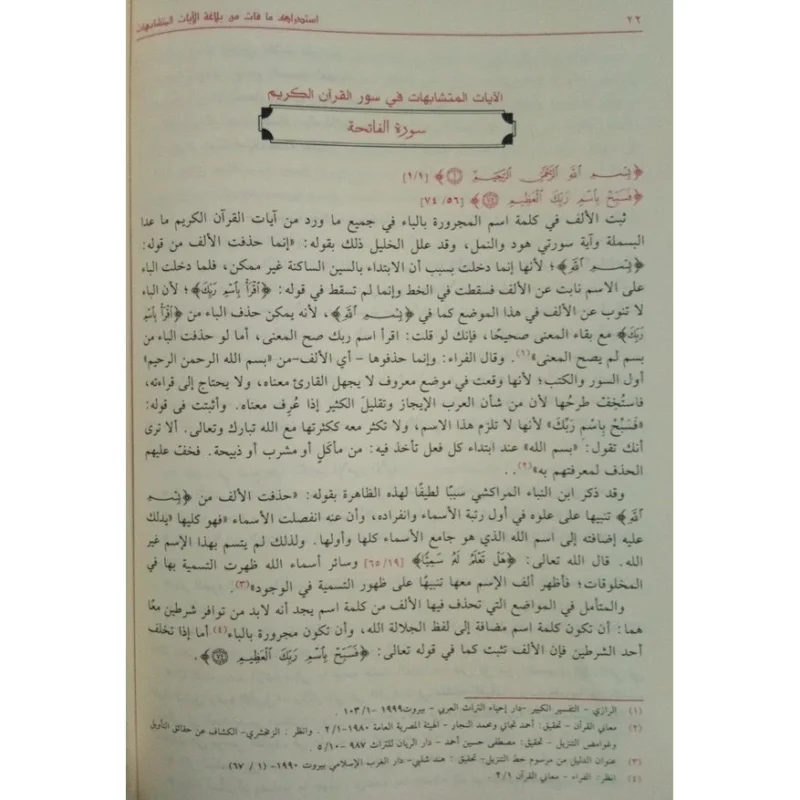 ٢٢
استدراك ما فات من بلاغة الآيات المتشابهات
الآيات المتشابهات في سور القرآن الكريم
سورة الفاتحة
﴿بِسْمِ اللَّهِ الرَّحْمَٰنِ الرَّحِيمِ ۝١﴾ [١/١]
﴿فَسَبِّحْ بِاسْمِ رَبِّكَ الْعَظِيمِ ۝٧٤﴾ [٧٤/٥٦]
ثبت الألف في كلمة اسم المجرورة بالباء في جميع ما ورد من آيات القرآن الكريم ما عدا
البسملة وآية سورتي هود والنمل، وقد علل الخليل ذلك بقوله: «إنما حذفت الألف من قوله:
﴿بِسْمِ اللَّهِ﴾؛ لأنها إنما دخلت بسبب أن الابتداء بالسين الساكنة غير ممكن، فلما دخلت الباء
على الاسم نابت عن الألف فسقطت في الخط وإنما لم تسقط في قوله: ﴿اقْرَأْ بِاسْمِ رَبِّكَ﴾؛ لأن الباء
لا تنوب عن الألف في هذا الموضع كما في ﴿بِسْمِ اللَّهِ﴾، لأنه يمكن حذف الباء من ﴿اقْرَأْ بِاسْمِ
رَبِّكَ﴾ مع بقاء المعنى صحيحًا، فإنك لو قلت: اقرأ اسم ربك صح المعنى، أما لو حذفت الباء من
بسم لم يصح المعنى»(١). وقال الفراء: وإنما حذفوها – أي الألف–من «بسم الله الرحمن الرحيم»
أول السور والكتب؛ لأنها وقعت في موضع معروف لا يجهل القارئ معناه، ولا يحتاج إلى قراءته،
فاستُخِفّ طرحُها لأن من شأن العرب الإيجاز وتقليلَ الكثير إذا عُرِف معناه. وأثبتت فى قوله:
«فَسَبِّحْ بِاسْمِ رَبِّكَ» لأنها لا تلزم هذا الاسم، ولا تكثر معه ككثرتها مع الله تبارك وتعالى. ألا ترى
أنك تقول: «بسم الله» عند ابتداء كل فعل تأخذ فيه: من مأكلٍ أو مشرب أو ذبيحة. فخفّ عليهم
الحذف لمعرفتهم به»(٢)..
وقد ذكر ابن البناء المراكشي سببًا لطيفًا لهذه الظاهرة بقوله: «حذفت الألف من ﴿بِسْمِ
اللَّهِ﴾ تنبيها على علوه في أول رتبة الأسماء وانفراده، وأن عنه انفصلت الأسماء «فهو كليها «يدلك
عليه إضافته إلى اسم الله الذي هو جامع الأسماء كلها وأولها. ولذلك لم يتسم بهذا الإسم غير
الله. قال الله تعالى: ﴿هَلْ تَعْلَمُ لَهُ سَمِيًّا﴾ [٦٥/١٩] وسائر أسماء الله ظهرت التسمية بها في
المخلوقات؛ فأظهر ألف الإسم معها تنبيهًا على ظهور التسمية في الوجود»(٣).
والمتأمل في المواضع التي تحذف فيها الألف من كلمة اسم يجد أنه لابد من توافر شرطين معًا
هما: أن تكون كلمة اسم مضافة إلى لفظ الجلالة الله، وأن تكون مجرورة بالباء(٤) أما إذا تخلف
أحد الشرطين فإن الألف تثبت كما في قوله تعالى: ﴿فَسَبِّحْ بِاسْمِ رَبِّكَ الْعَظِيمِ ۝٧٤﴾.
(١) الرازي – التفسير الكبير –دار إحياء التراث العربي – بيروت١٩٩٩ –١٠٣/١ .
(٢) معاني القرآن – تحقيق: أحمد نجاتي ومحمد النجار – الهيئة المصرية العامة ١٩٨٠–٢/١ . وانظر : الزمخشري– الكشاف عن حقائق التأويل
وغوامض التنزيل – تحقيق: مصطفى حسين أحمد – دار الريان للتراث ٩٨٧ –٥/١٠ .
(٣) عنوان الدليل من مرسوم خط التنزيل– تحقيق : هند شلبي– دار الغرب الإسلامي بيروت ١٩٩٠– (١ / ٦٧)
(٤) انظر: الفراء – معاني القرآن ٢/١ .